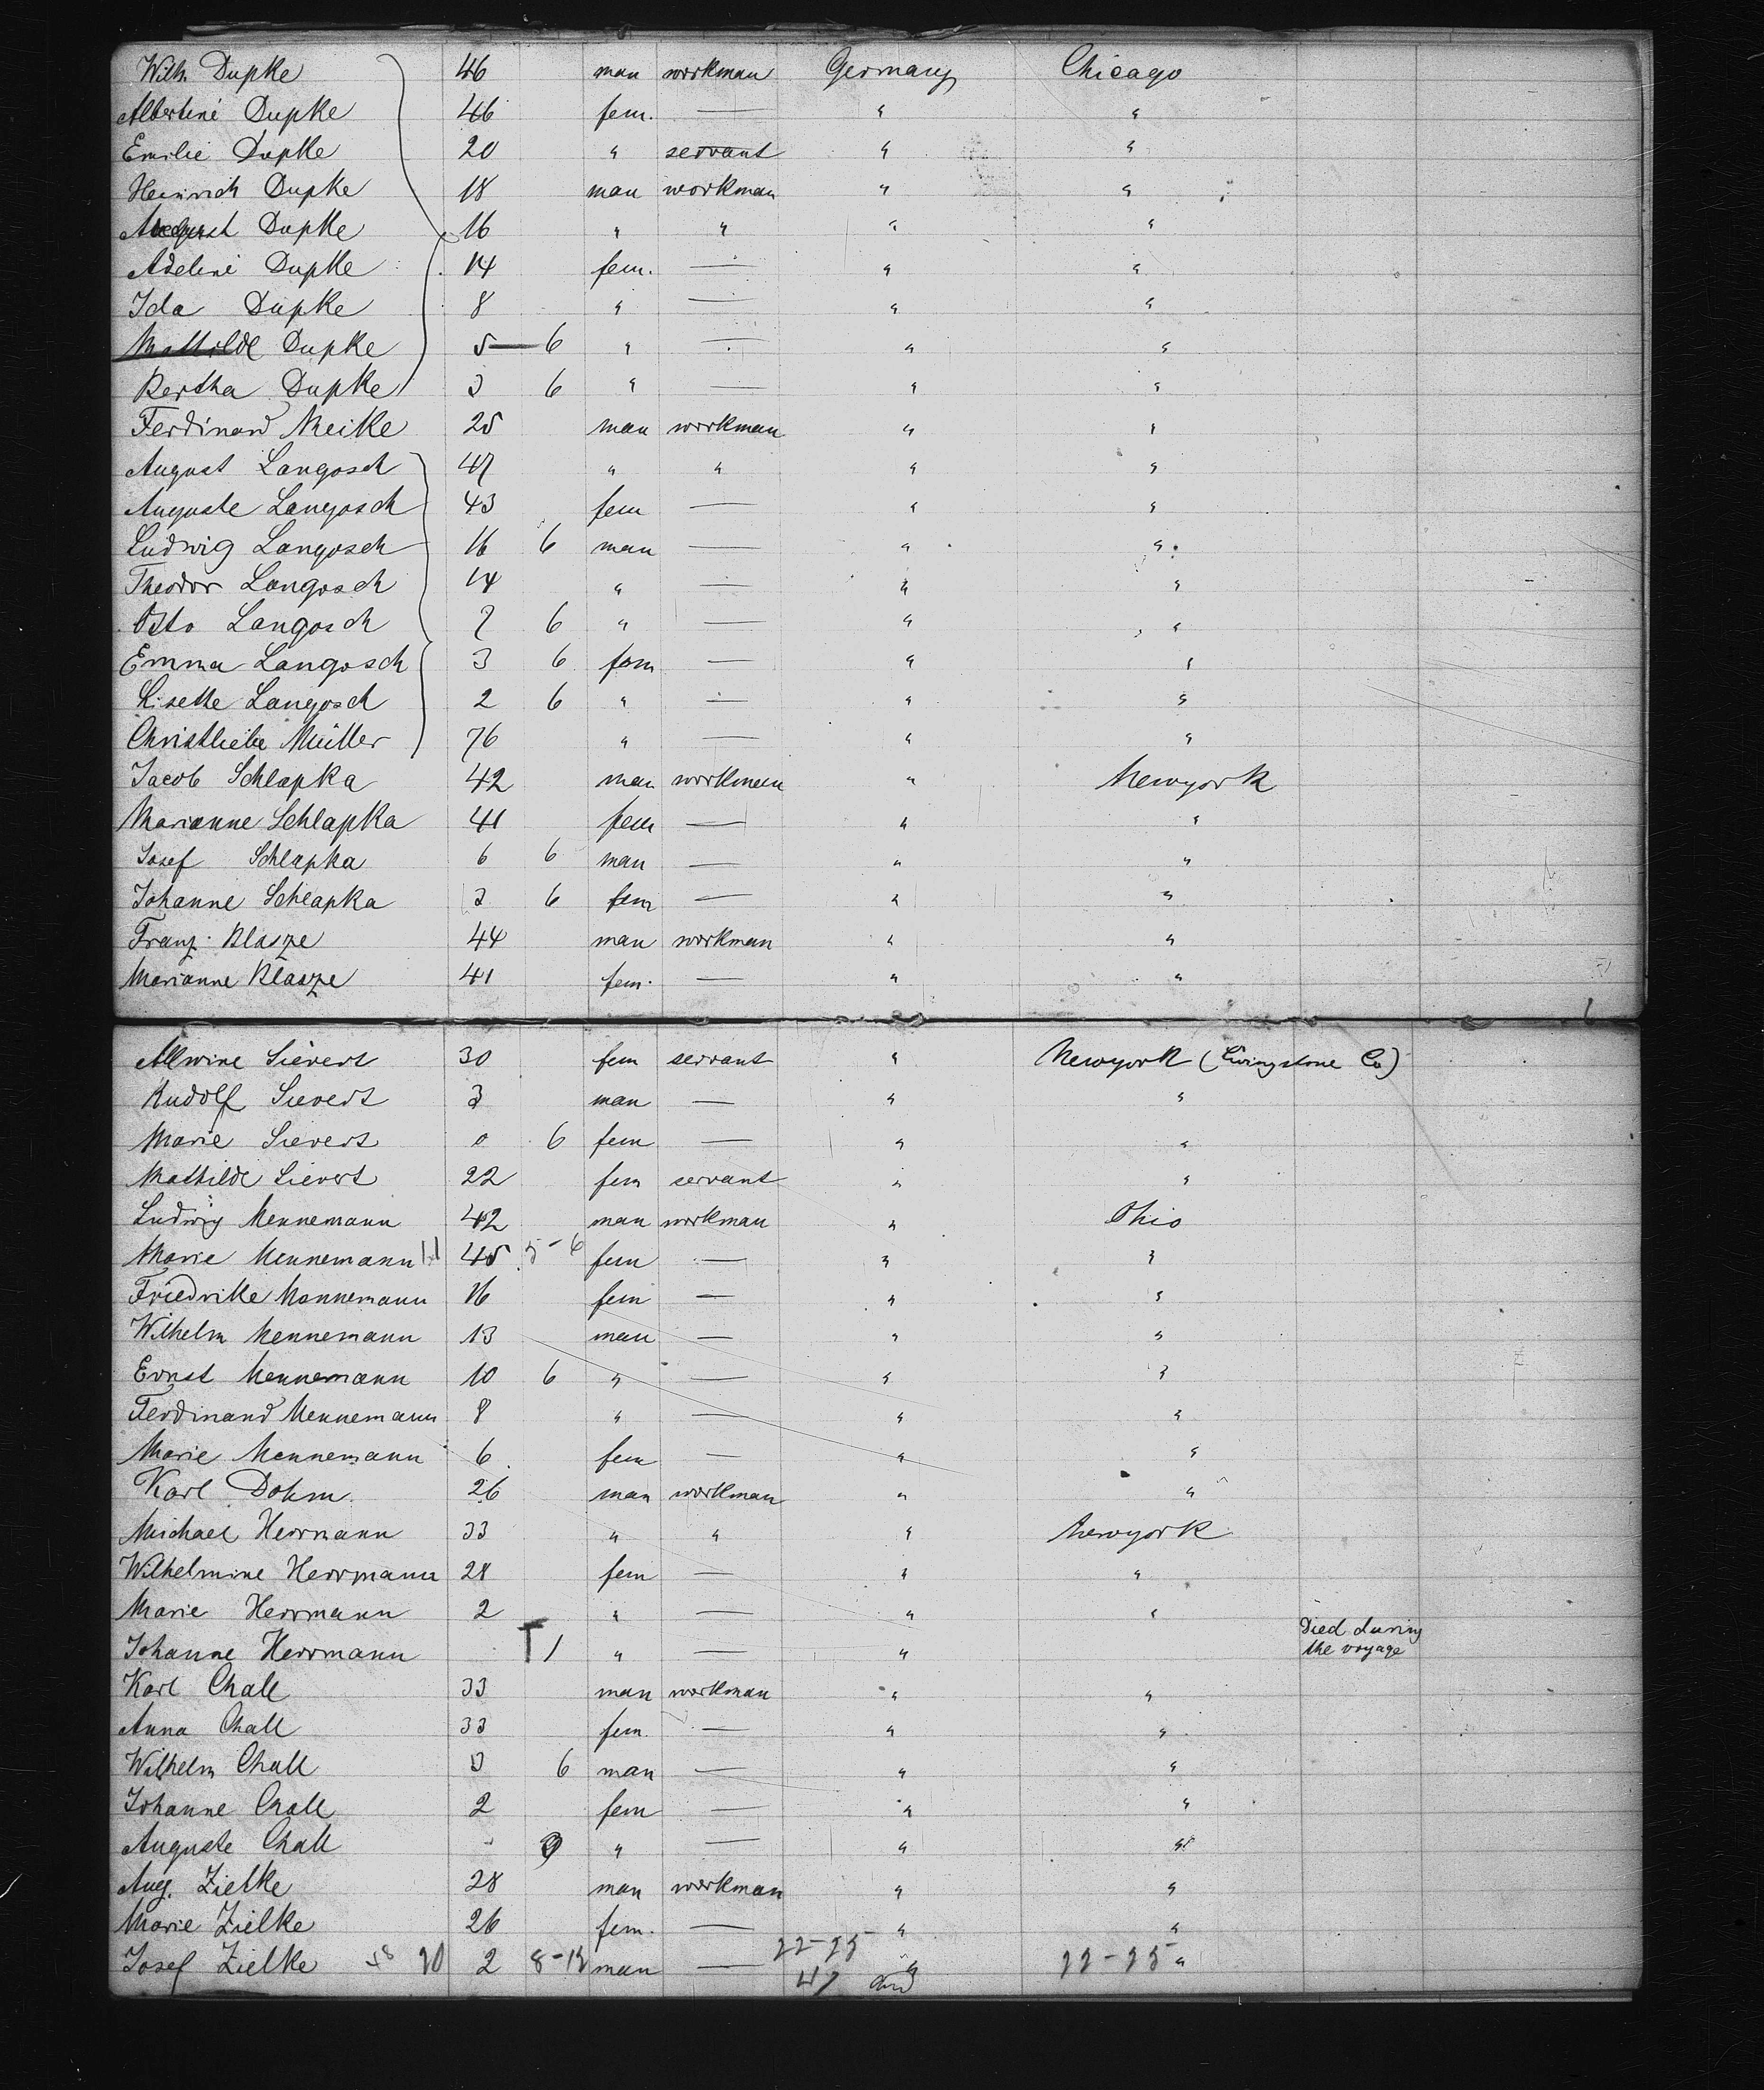 Wilh Dupke 46 man workman Germany Chicago
Albertine Dupke 46 fem. — " "
Emilie Dupke 20 " servant " "
Heinrich Dupke 18 man workman " "
August Dupke 16 " " " "
Adeline Dupke 14 fem. — " "
Ida Dupke 8 " — " "
Mathilde Dupke 5 — 6 " — " "
Bertha Dupke 3 6 " — " "
Ferdinand Meike 25 man workman " "
August Langosch 47 " " " "
Auguste Langosch 43 fem — " "
Ludwig Langosch 16 6 man — " "
Theodor Langosch 14 " — " "
Otto Langosch 7 6 " — " "
Emma Langosch 3 6 fem — " "
Lisette Langosch 2 6 " — " "
Christliebe Müller 76 " — " "
Jacob Schlapka 42 man workman " Newyork
Marianne Schlapka 41 fem — " "
Josef Schlapka 6 6 man — " "
Johanne Schlapka 3 6 fem — " "
Franz Blasze 44 man workman " "
Marianne Blasze 41 fem. — " "
Allwine Sievert 30 fem servant " Newyork (Livingstone Co)
Rudolf Sievert 3 man — " "
Marie Sievert 0 6 fem — " "
Mathilde Sievert 22 fem servant " "
Ludwig Mennemann 42 man workman " Ohio
Marie Mennemann 11 45 5-6 fem — " "
Friedrike Mennemann 16 fem — " "
Wilhelm Mennemann 13 man — " "
Ernst Mennemann 10 6 " — " "
Ferdinand Mennemann 8 " — " "
Marie Mennemann 6 fem — " "
Karl Dohm 26 man workman " "
Michael Herrmann 33 " " " Newyork
Wilhelmine Herrmann 28 fem — " "
Marie Herrmann 2 " — " "
Johanne Herrmann † 1 " — " Died during the voyage
Karl Chall 33 man workman " "
Anna Chall 33 fem. — " "
Wilhelm Chall 3 6 man — " "
Johanne Chall 2 fem — " "
Auguste Chall - 9 " — " "
Aug. Zielke 28 man workman " "
Marie Zielke 26 fem. — " "
Josef Zielke 2 man — " "